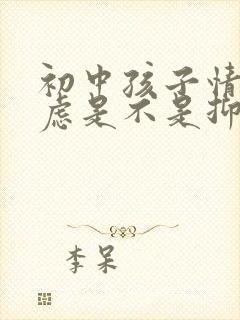 初中孩子情
虑是不是抑
李呆